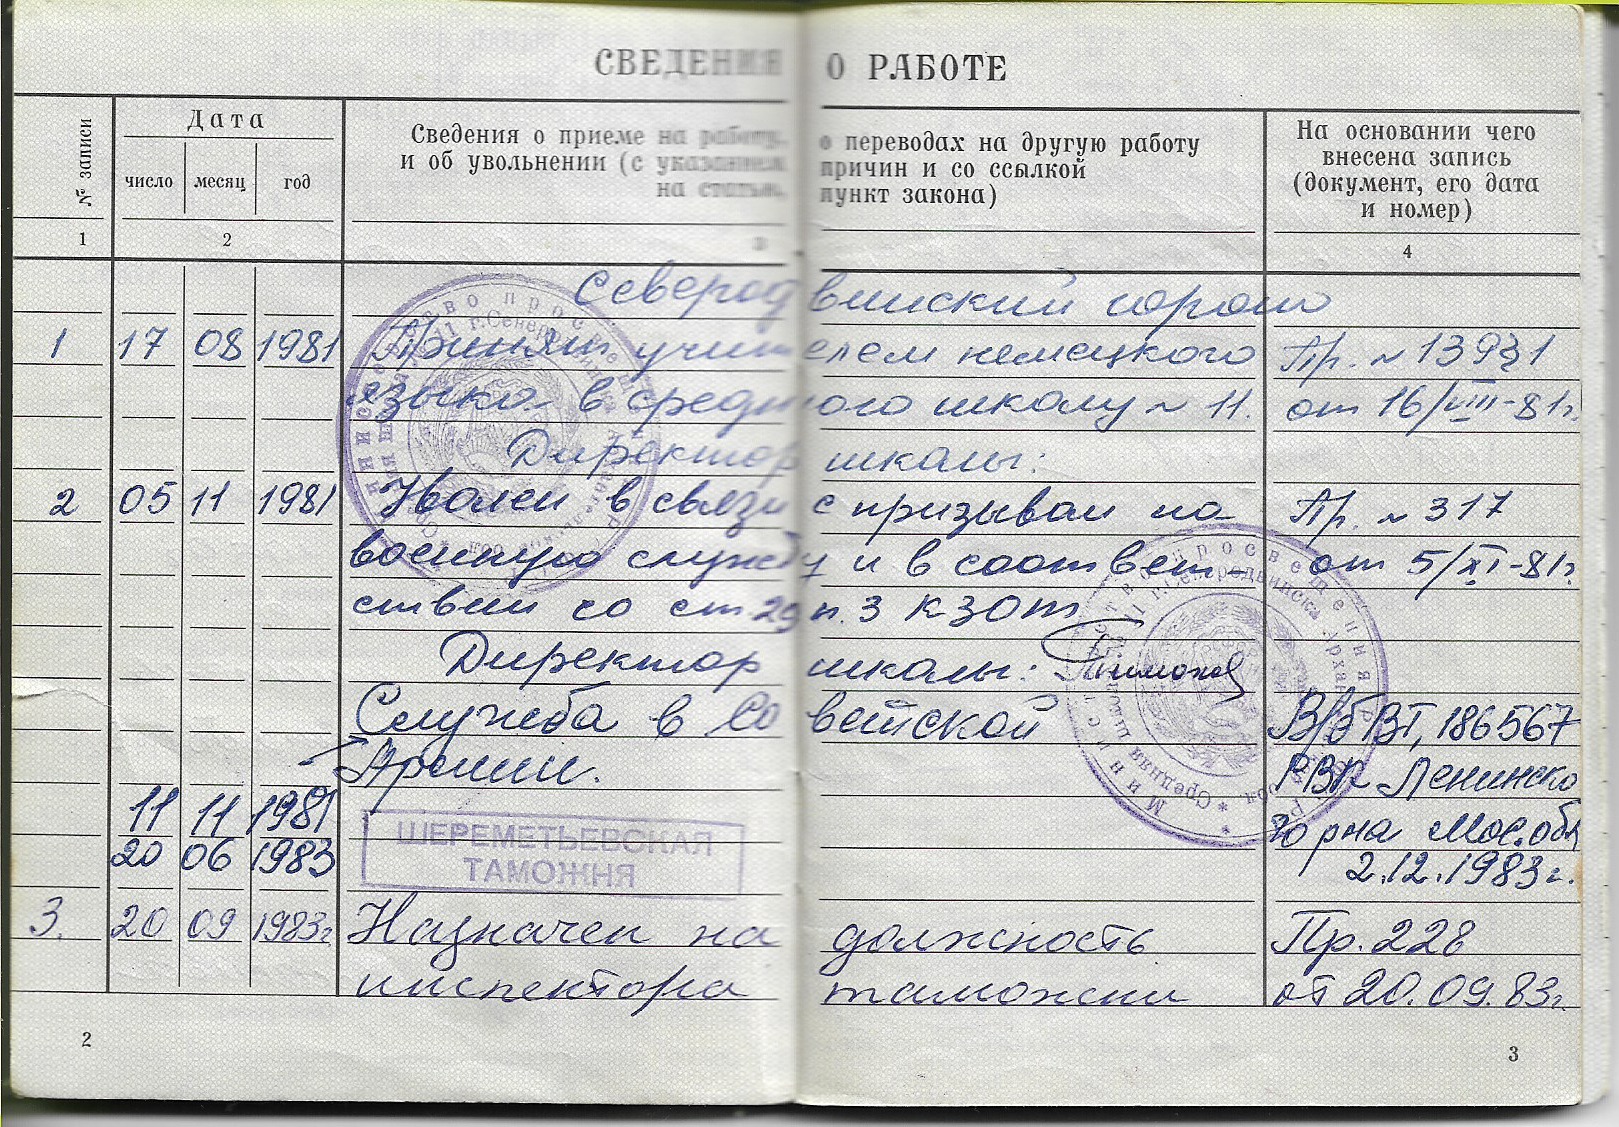 СВЕДЕНИЯ О РАБОТЕ
№ записи
Дата
число месяц год
Сведения о приеме на работу, о переводах на другую работу
и об увольнении (с указанием причин и со ссылкой
на статью, пункт закона)
На основании чего
внесена запись
(документ, его дата
и номер)
1 2 3 4
Северодвинский гороно
1 17 08 1981 Принят учителем немецкого Пр. №
языка в среднюю школу № 11. от 16/VIII-81г.
Директор школы:
2 05 11 1981 Уволен в связи с призывом на Пр. № 317
военную службу и в соответ- от 5/XI-81г.
ствии со ст. 29 п. 3 КЗОТ
Директор школы:
Служба в Советской В/б ВТ, 186567
Армии. РВК Ленинско
11 11 1981 го р-на Мос. обл
20 06 1983 2.12.1983г.
ШЕРЕМЕТЬЕВСКАЯ
ТАМОЖНЯ
3. 20 09 1983г Назначен на должность Пр. 228
инспектора таможни от 20.09.83г.
2
3